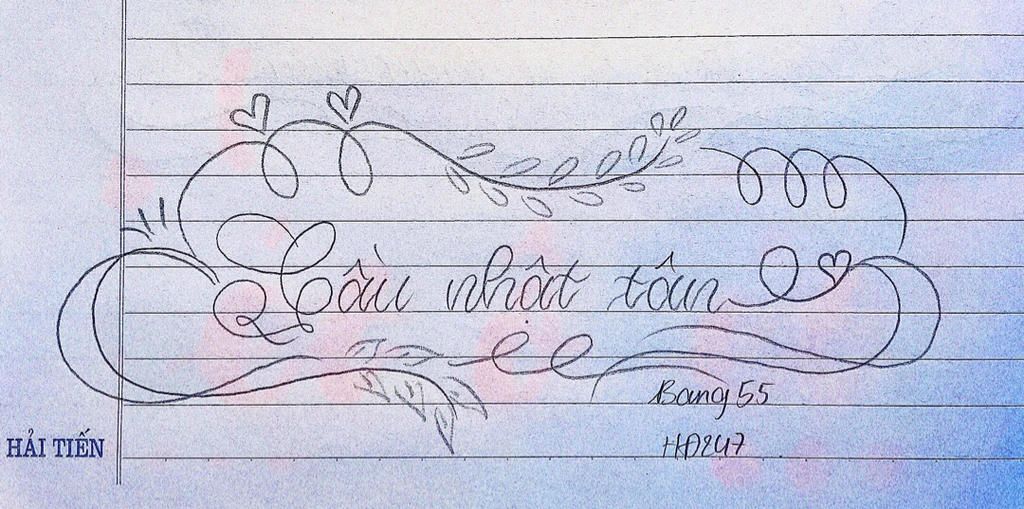 Cầu nhật tân
Bang 55
HD247
HẢI TIẾN